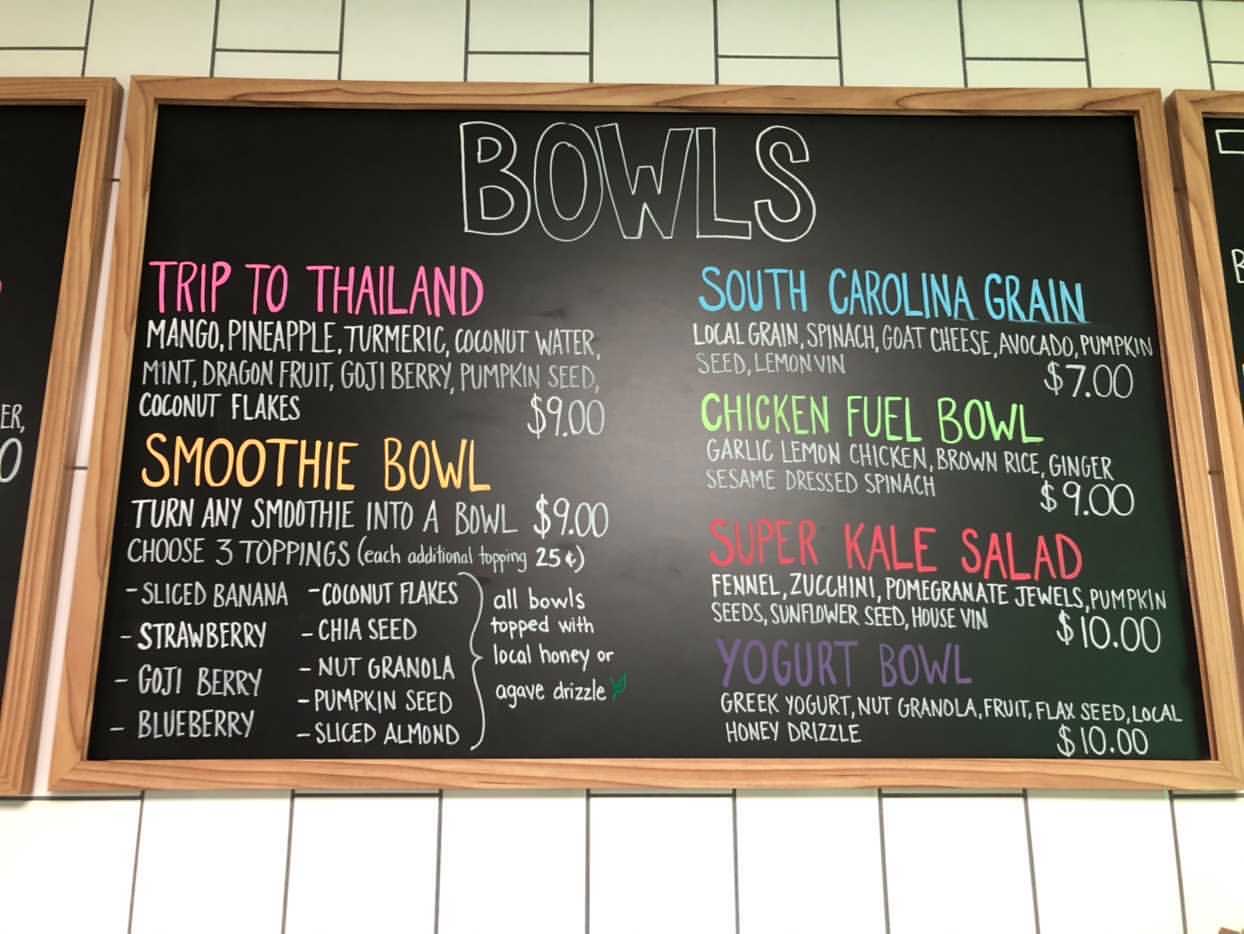 BOWLS
TRIP TO THAILAND
MANGO, PINEAPPLE, TURMERIC, COCONUT WATER,
MINT, DRAGON FRUIT, GOJI BERRY, PUMPKIN SEED,
COCONUT FLAKES $9.00
SMOOTHIE BOWL
TURN ANY SMOOTHIE INTO A BOWL $9.00
CHOOSE 3 TOPPINGS (each additional topping 25¢)
- SLICED BANANA - COCONUT FLAKES
- STRAWBERRY - CHIA SEED
- GOJI BERRY - NUT GRANOLA
- BLUEBERRY - PUMPKIN SEED
- SLICED ALMOND
all bowls
topped with
local honey or
agave drizzle
SOUTH CAROLINA GRAIN
LOCAL GRAIN, SPINACH, GOAT CHEESE, AVOCADO, PUMPKIN
SEED, LEMON VIN $7.00
CHICKEN FUEL BOWL
GARLIC LEMON CHICKEN, BROWN RICE, GINGER
SESAME DRESSED SPINACH $9.00
SUPER KALE SALAD
FENNEL, ZUCCHINI, POMEGRANATE JEWELS, PUMPKIN
SEEDS, SUNFLOWER SEED, HOUSE VIN $10.00
YOGURT BOWL
GREEK YOGURT, NUT GRANOLA, FRUIT, FLAX SEED, LOCAL
HONEY DRIZZLE $10.00
ER,
0